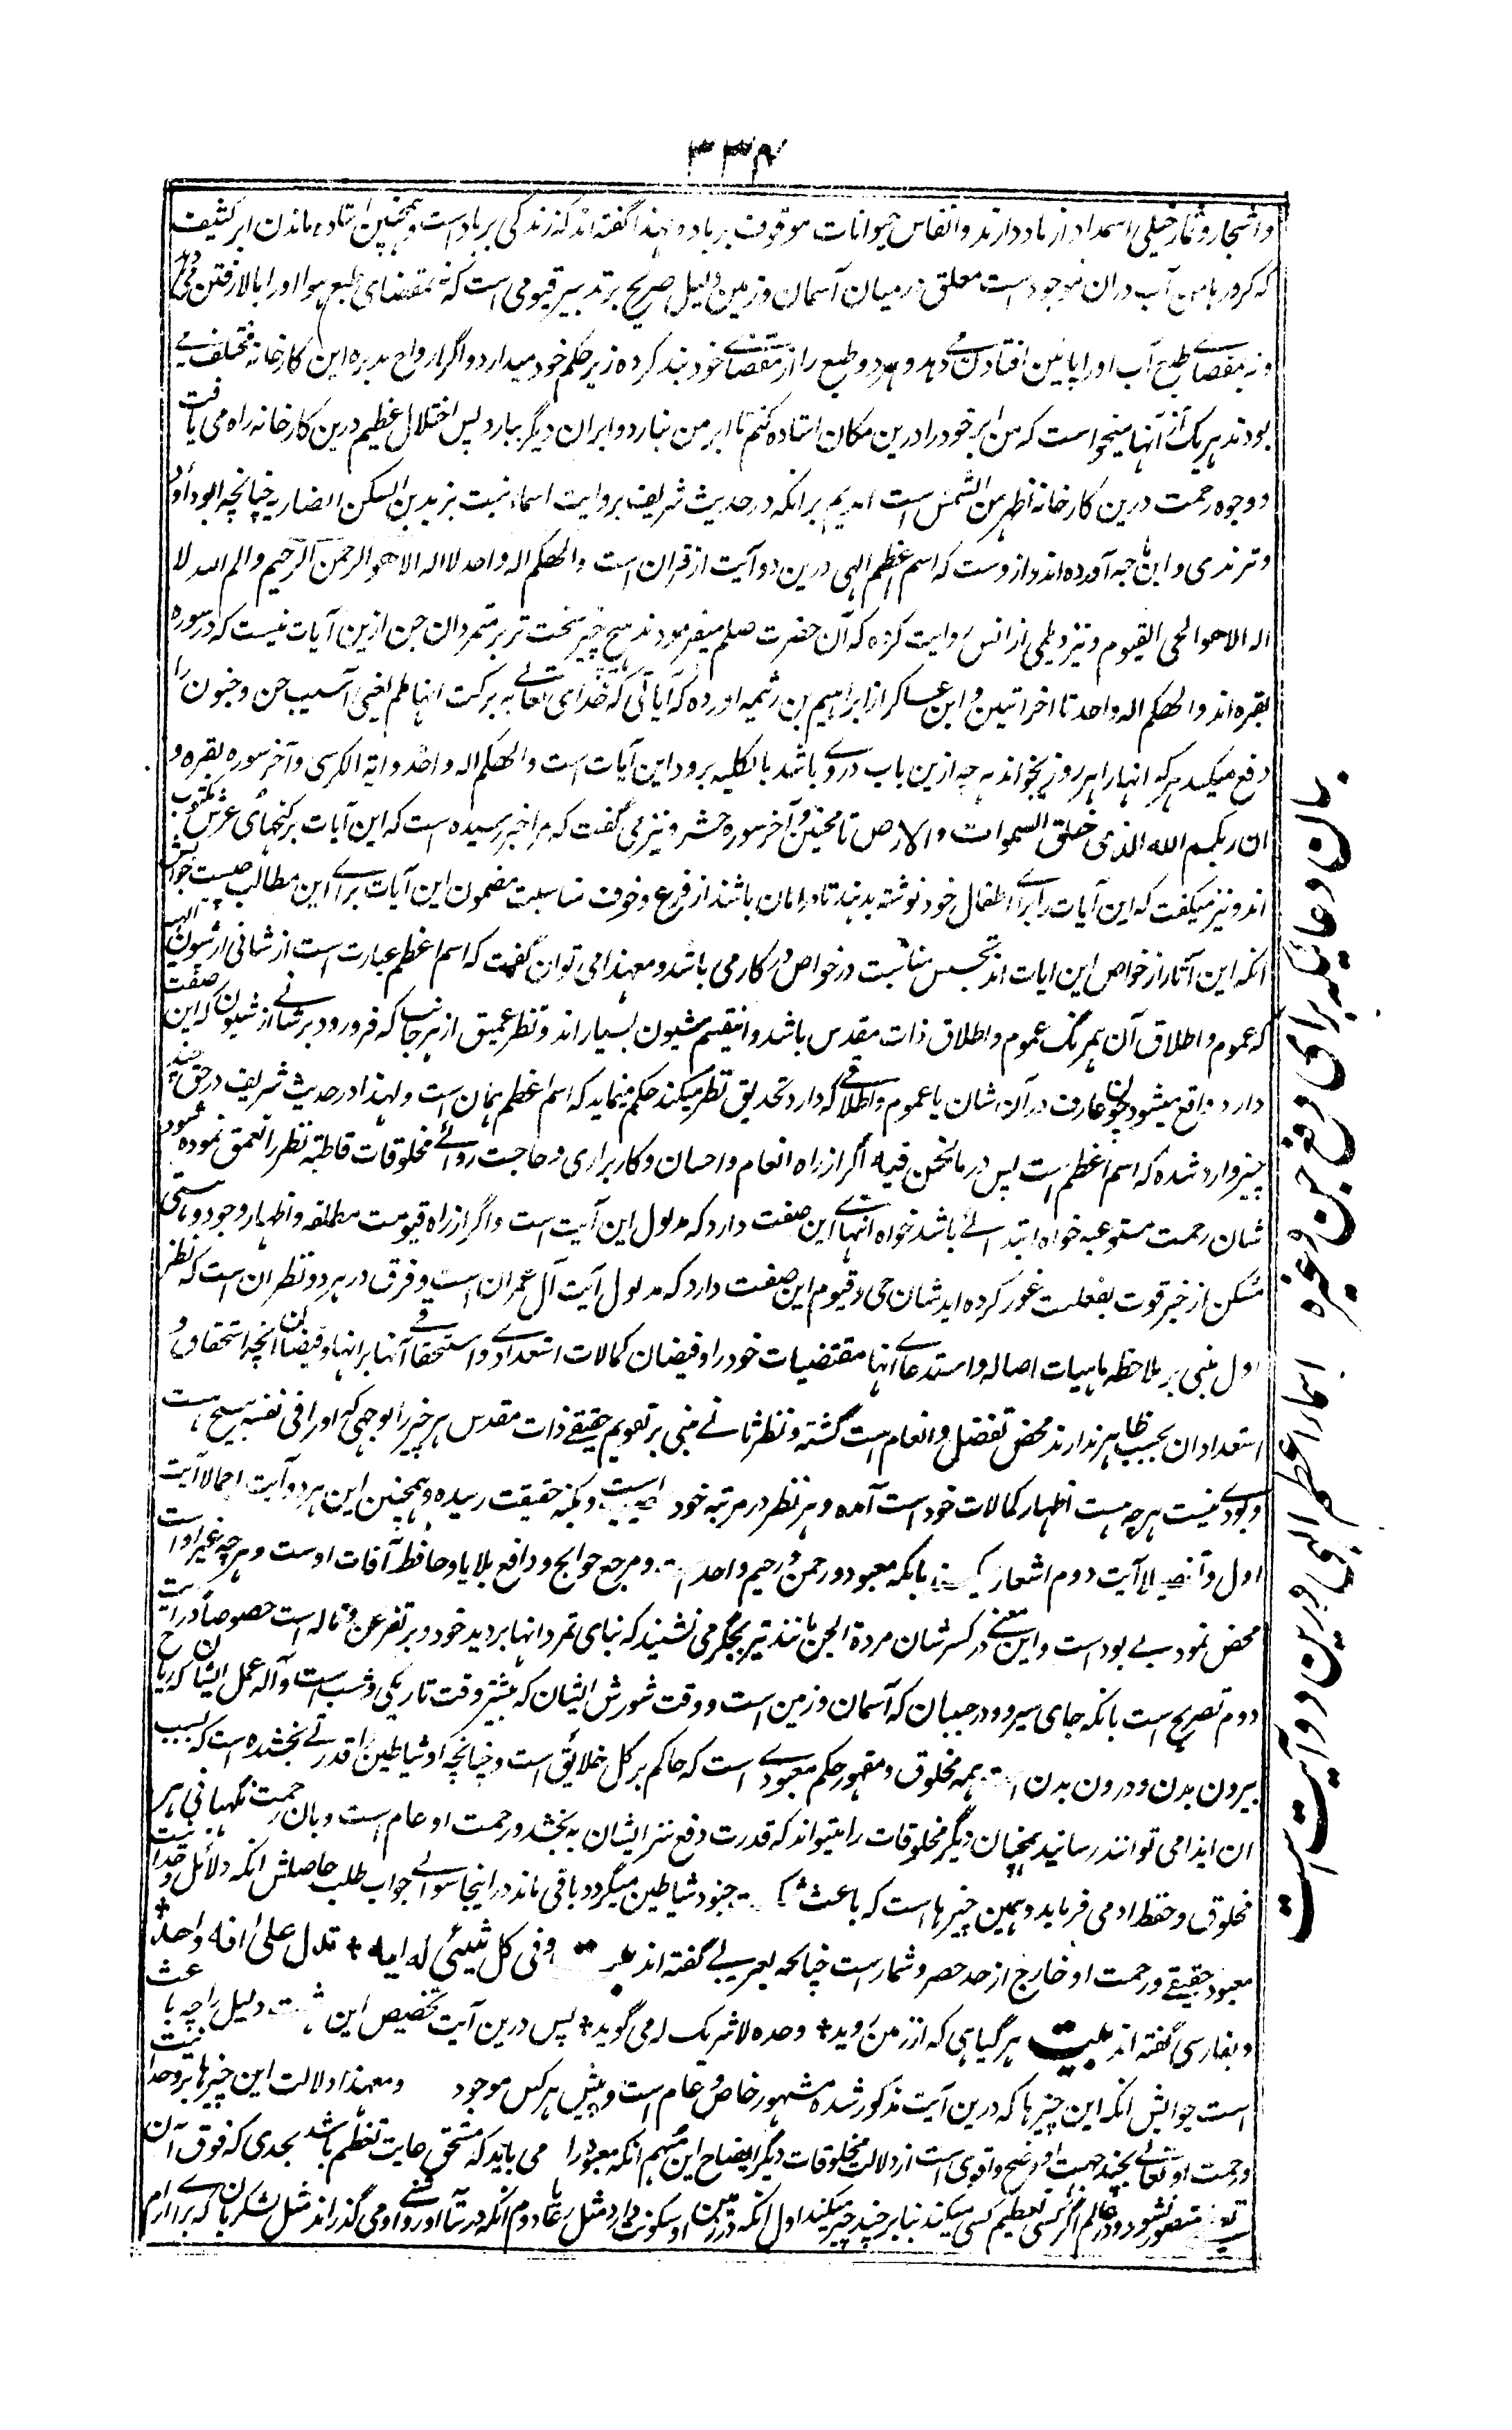 ۳۳۸
و اشجار و ثمار خیلی استمداد از باد دارند و انفاس حیوانات موقوف بر باد و لهذا گفته اند که زندگی بر باد است و همچنین استاده ماندن ابر کثیف
که کرورها من آب دران موجود است معلق درمیان آسمان و زمین دلیل صریح بر تدبیر قیومی است که نه بمقتضای طبع هوا او را بالا رفتن می دهد
و نه بمقتضای طبع آب او را پایین افتادن می دهد و هر دو طبع را از مقتضای خود بند کرده زیر حکم خود میدارد و اگر ارواح مدبره این کارخانه مختلف می
بودند هر یک از آنها میخواست که من ابر خود را درین مکان استاده کنم تا ابر من ببارد و ابر آن دیگر نبارد پس اختلال عظیم درین کارخانه راه می یافت
و وجوه رحمت درین کارخانه اظهر من الشمس است آمدیم برانکه در حدیث شریف بروایت اسماء بنت یزید بن السکن انصاریه چنانچه ابوداؤد
و ترمذی و ابن ماجه آورده اند وارد است که اسم اعظم الهی درین دو آیت از قران است والهکم اله واحد لا اله الا هو الرحمن الرحیم و الم الله لا
اله الا هو الحی القیوم و نیز دیلمی از انس روایت کرده که آن حضرت صلعم میفرمودند هیچ چیز سخت تر بر متمردان جن ازین آیات نیست که در سوره
بقره اند والهکم اله واحد تا اخر آیتین و ابن عساکر از ابراهیم بن وثیمه آورده که آیاتی که خدای تعالی به برکت انها لمم یعنی آسیب جن و جنون را
دفع میکند هر که انها را هر روز بخواند هر چه ازین باب در وی باشد بالکلیه برود این آیات است والهکم اله واحد و آیة الکرسی و آخر سوره بقره و
ان ربکم الله الذی خلق السموات والارض تا محسنین و آخر سوره حشر و نیز می گفت که مرا خبر رسیده است که این آیات بر کنجهای عرش مکتوب
اند و نیز میگفت که این آیات را برای اطفال خود نوشته بدهید تا در امان باشند از فزع و خوف مناسبت مضمون این آیات برای این مطالب چیست جوابش
انکه این آثار از خواص این ایات اند تجسس مناسبت در خواص در کار می باشد و معهذا می توان گفت که اسم اعظم عبارت است از شانی از شیون الهیه
که عموم و اطلاق آن همرنگ عموم و اطلاق ذات مقدس باشد و اینقسم شیون بسیار اند و نظر عمیق از هر جانب که فرو رود بر شانی از شیون که این صفت
دارد واقع میشود و چون عارف در آن شان با عموم و اطلاقی که دارد تحدیق نظر میکند حکم مینماید که اسم اعظم همان است و لهذا در حدیث شریف در حق چند
چیز وارد شده که اسم اعظم است پس در ما نحن فیه اگر از راه انعام و احسان و کاربراری و حاجت روائی مخلوقات قاطبه نظر را تعمق نموده شود
شان رحمت مستوعبه خواه ابتدائی باشد خواه انتهائی این صفت دارد که مدلول این آیت است و اگر از راه قیومیت مطلقه و اظهار وجود و هستی
ممکن از حیز قوت بفعلیت غور کرده آید شان حی و قیوم این صفت دارد که مدلول آیت آل عمران است و فرق در هر دو نظر ان است که نظر
اول مبنی بر ملاحظه ماهیات اصاله و استدعای آنها مقتضیات خود را و فیضان کمالات استعدادی و استحقاقی آنها بر انها و فیضان انچه استحقاق و
استعداد ان بحسب ظاهر ندارند محض تفضل و انعام است گشته و نظر ثانی مبنی بر تقویم حقیقی ذات مقدس هر چیز را بوجهی که او را فی نفسه هیچ هست
و بودی نیست هر چه هست اظهار کمالات خود است آمده و هر نظر در مرتبه خود است و بکنه حقیقت رسیده و همچنین این هر دو آیت اجمالا آیت
اول و تفصیلا آیت دوم اشعار بانکه معبود و رحمن و رحیم واحد و مرجع حوائج و دافع بلایا و حافظ آفات اوست و هر چه غیر اوست
محض نمود بی بود است و این معنی در کسر شان مردة الجن مانند تیر بجگر می نشیند که بنای تمرد انها بر دید خود و بر تفرعن و تاله است خصوصا در آیت
دوم تصریح است بانکه جای سیر و دور جنیان که آسمان و زمین است و وقت شورش ایشان که بیشتر وقت تاریکی و شب است و آله عمل ایشان که ریاح
بیرون بدن و درون بدن است همه مخلوق و مقهور حکم معبودی است که حاکم بر کل خلائق است و چنانچه او شیاطین را قدرتی بخشیده است که بسبب
ان ایذا می توانند رسانید همچنان دیگر مخلوقات را میتواند که قدرت دفع شر ایشان به بخشد و رحمت او عام است و بان رحمت نگهبانی هر
مخلوق و حفظ او می فرماید و همین چیزها است که باعث جنود شیاطین میگردد باقی ماند در اینجا سوالی جواب طلب حاصلش انکه دلائل وحدانیت
معبود حقیقی و رحمت او خارج از حد حصر و شمار است چنانچه بعربی گفته اند بیت وفی کل شیئی له ایة * تدل علی انه واحد *
و بفارسی گفته اند بیت هر گیاهی که از زمین روید * وحده لا شریک له می گوید * پس درین آیت تخصیص این دلیل را چه باعث
است جوابش انکه این چیزها که درین آیت مذکور شده مشهور خاص و عام است و پیش هر کس موجود و معهذا دلالت این چیزها بر وحدانیت
و رحمت او تعالی بچند جهت اوضح و اقوی است از دلالت مخلوقات دیگر ایضاح این مبهم انکه معبود را می باید که مستحق غایت تعظیم باشد بحدی که فوق آن
متصور نشود و در عالم اگر کسی تعظیم کسی میکند بنا بر چند چیز میکند اول انکه در زمین او سکونت دارد مثل رعایا دوم انکه در رفاقت او روز و شب می گذراند مثل لشکریان که برای آرام
بیان دعائیکه برای دفع جن و غیره
اسم اعظم الهی درین دو آیت است